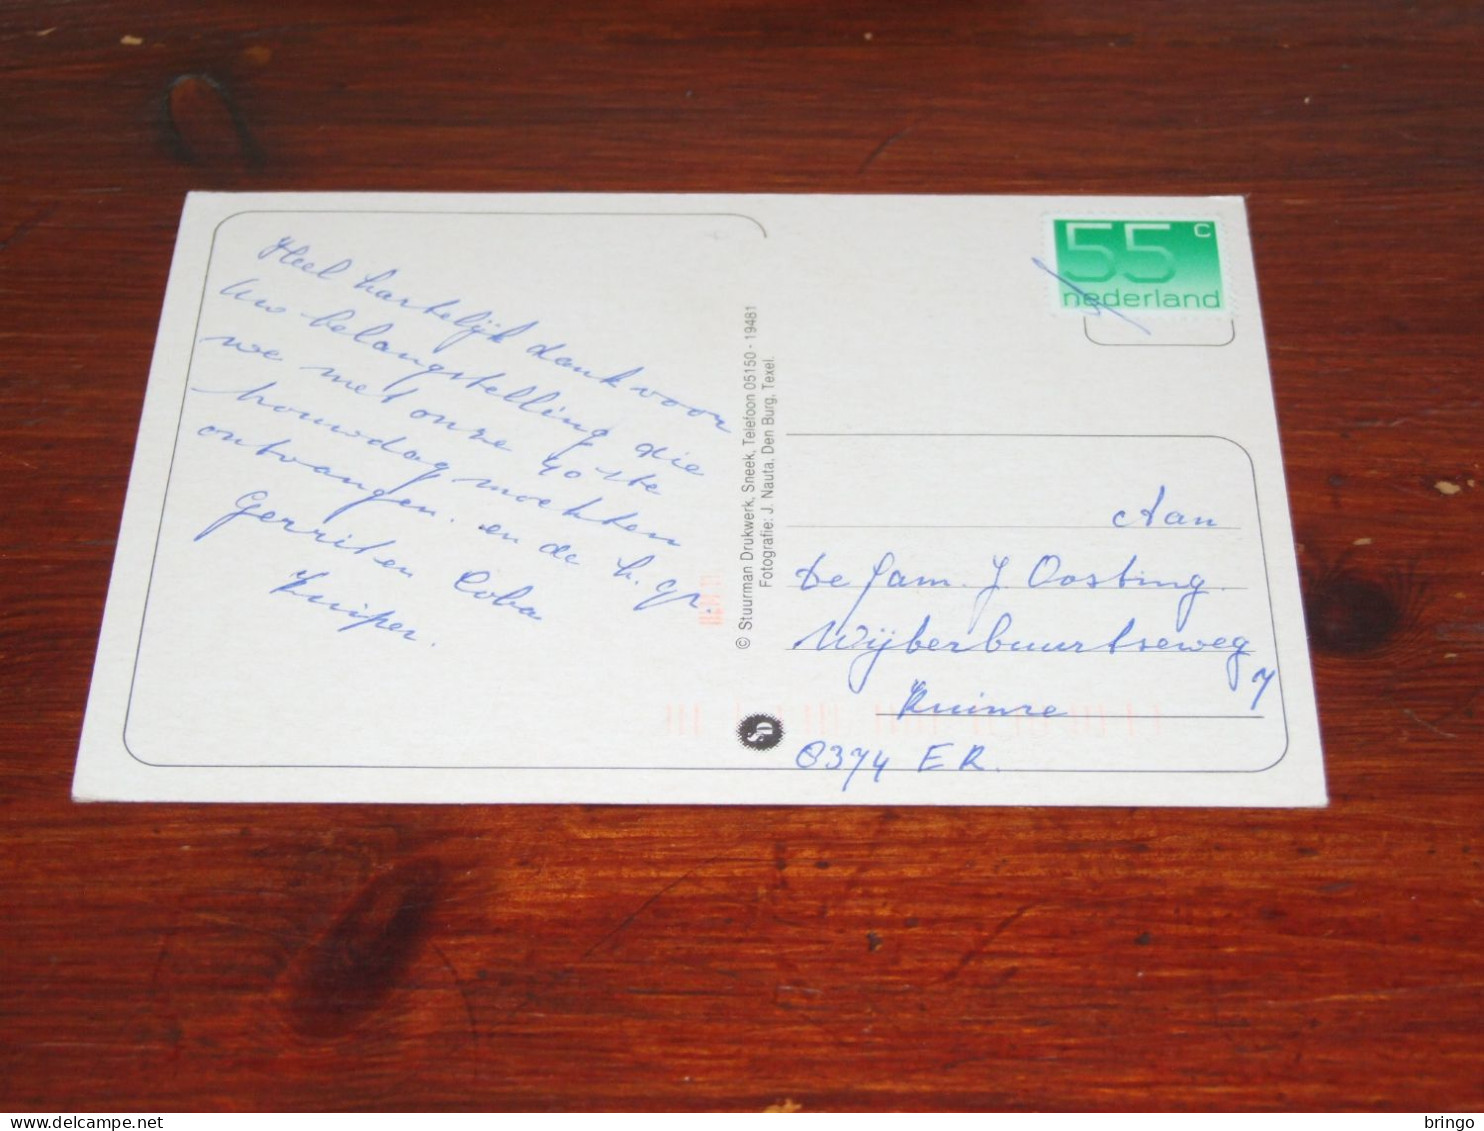 Heel hartelijk dank voor
Uw belangstelling die
we met onze 40 ste
trouwdag mochten
ontvangen. en de h. gr.
Gerrit en Coba
Kuiper.
© Stuurman Drukwerk, Sneek, Telefoon 05150 - 19481
Fotografie: J. Nauta, Den Burg, Texel.
SD
55 c
nederland
Aan
De fam. J Oosting.
Wijberbuurtseweg
7
Kuinre
8374 ER.
bringo